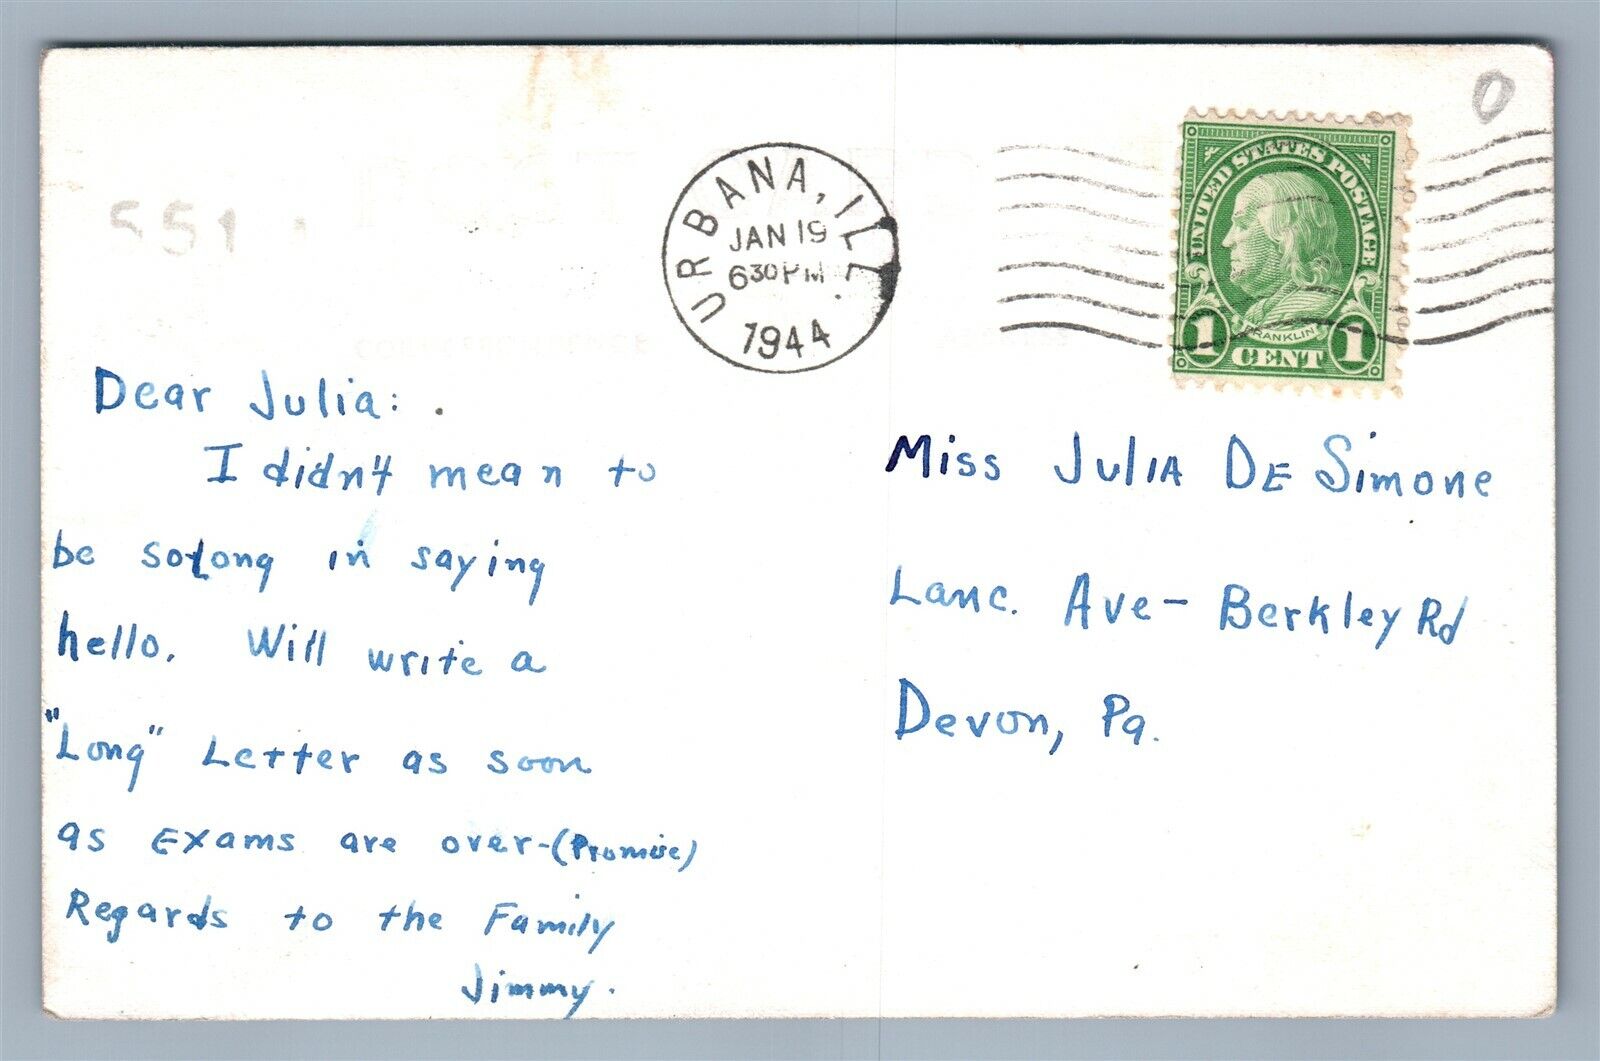 551
URBANA, ILL.
JAN 19
630PM
1944
UNITED STATES POSTAGE
FRANKLIN
1 CENT 1
0
Dear Julia:
I didn't mean to
be so long in saying
hello. Will write a
"Long" Letter as soon
as Exams are over-(Promise)
Regards to the Family
Jimmy.
Miss Julia De Simone
Lanc. Ave- Berkley Rd
Devon, Pa.